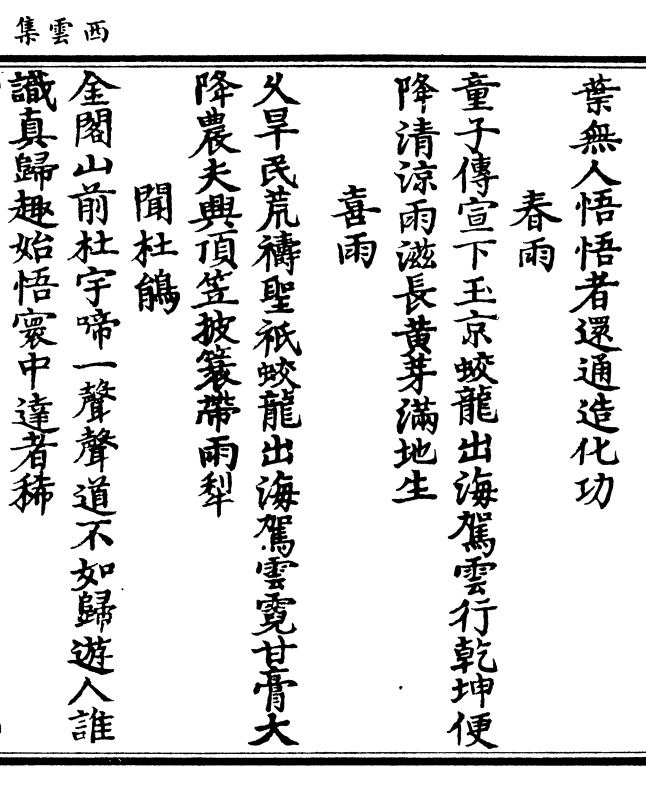 西雲集
葉無人悟悟者還通造化功
春雨
童子傳宣下玉京蛟龍出海駕雲行乾坤便
降清涼雨滋長黄芽滿地生
喜雨
久旱民荒禱聖祇蛟龍出海駕雲霓甘膏大
降農夫興頂笠披簑帶雨犁
聞杜鵑
金閣山前杜宇啼一聲聲道不如歸遊人誰
識真歸趣始悟寰中達者稀